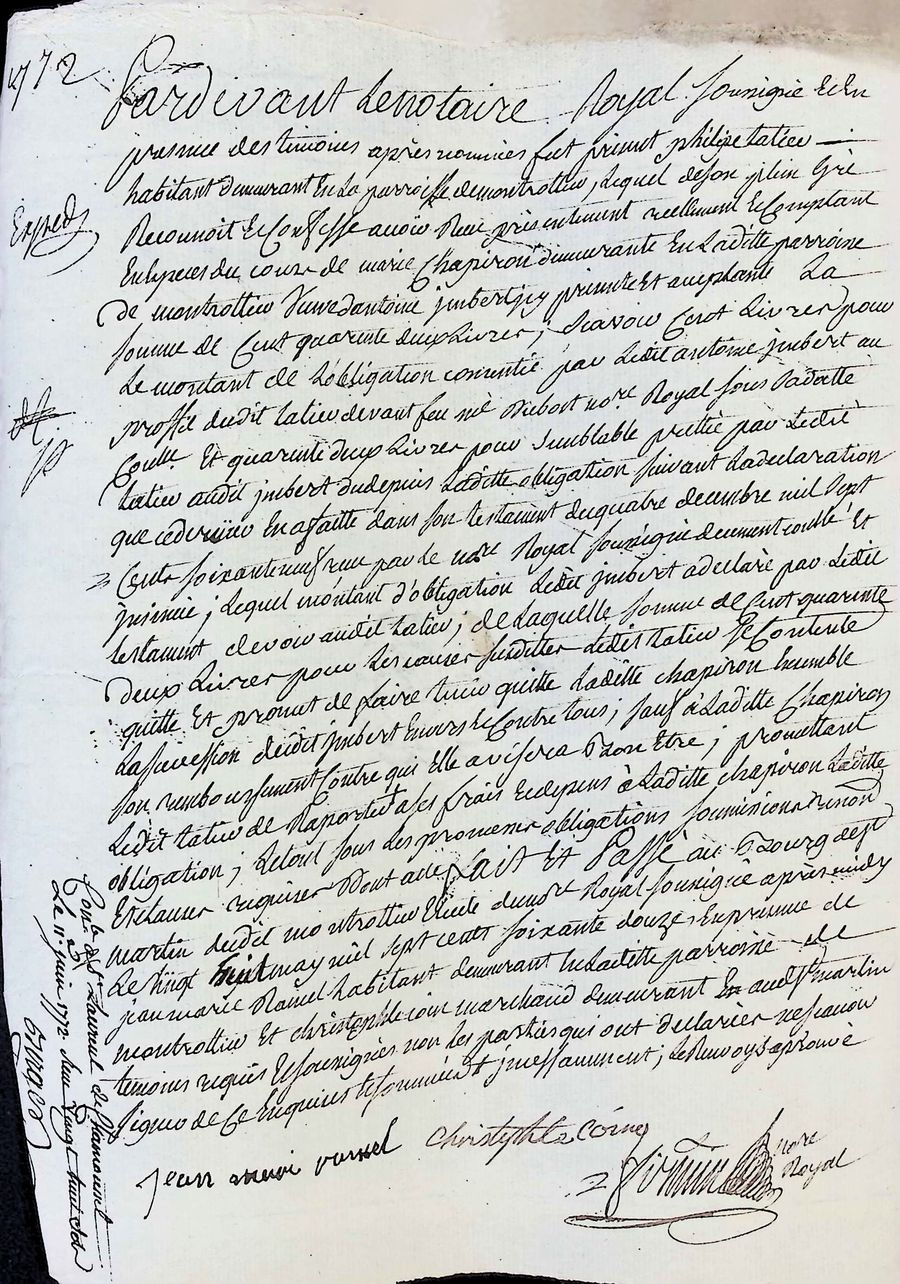 1772
Pardevant Le notaire Royal soussigné et En
presence des temoins après nommés fut present philipe tatieu
habitant demeurant En La parroisse de montrottier, Lequel de son plein Gré
Expedé
Reconnoit et Confesse avoir Reçu présentement reellement et Comptant
En Especes du cours de marie Chapiron demeurante En Laditte parroisse
de montrottier veuve d'antoine jmbert jcy presente et acceptante La
somme de Cent quarente deux Livres; sçavoir Cent Livres pour
Le montant de L'obligation consentie par Ledit antoine jmbert au
proffit dudit tatieu devant feu me not.re Royal sous sa datte
Contllée. Et quarente deux Livres pour semblable prettée par Ledit
tatieu audit jmbert du depuis Laditte obligation suivant La declaration
que ce dernier En a faitte dans son testament du quatre decembre mil sept
Cents soixante neuf reçu par le no.re Royal soussigné deument contllé Et
jnsinué; Lequel montant d'obligation Ledit jmbert a declaré par Ledit
testament devoir audit tatieu; de Laquelle somme de Cent quarente
deux Livres pour Les causes susdittes Ledit tatieu se Contente
quitte Et promet de faire tenir quitte Laditte chapiron Ensemble
La succession dudit jmbert Envers et Contre tous; sauf à Laditte Chapiron
son remboursement Contre qui Elle avisera Bon Etre; promettant
Ledit tatieu de Raporter à ses frais et depens à Laditte chapiron Laditte
obligation; Le tout sous Les promesses obligations soumissions renon
Et clauses requises Dont acte fait Et Passé au Bourg de st
martin dudit montrottier Etude du no.re Royal soussigné après midy
Le vingt huit may mil sept cents soixante douze, En presence de
jean marie Ramel habitant demeurant En Laditte parroisse de
montrottier Et christophle coin marchand demeurant audit st martin
temoins requis Et soussignés non les parties qui ont declarées ne sçavoir
signer de ce Enquises Et sommées; Le Renvoy approuvé
jean marie ramel Christophle Coing
no.re
Royal
Con.lé à st Laurent de Chamousset
Le 11e juin 1772. Reçu vingt huit sols